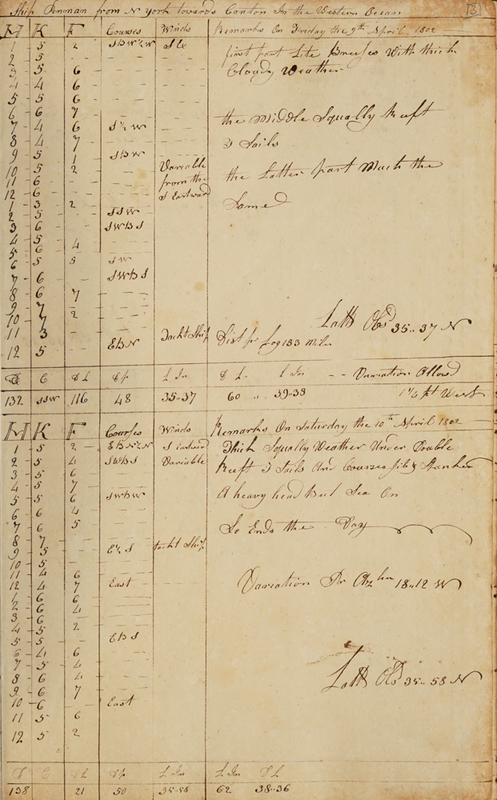 Ship Penman from N York towards Canton In the Western Ocean
H K F Courses Winds Remarks On Friday the 9th April 1802
1 5 2 SE
2 5 first part Lite Breezes With thick
3 5 6 Cloudy Weather
4 4 6
5 5 6
6 6 7 the Middle Squally Reeft
7 4 6 S½W
8 4 7 3 Sails
9 5 1 SBW
10 5 2 Variable the Latter part Much the
11 6 from the
12 6 S Eastward
1 3 2 SSW Same
2 5
3 6 SWBS
4 5 4
5 6
6 5 5 SW
7 6 SWBS
8 6 7
9 7
10 7 2 Latt Obsd 35-37 N
11 3 Tackt Ship Dist pr Log 133 Miles
12 5 EBN
D C D L Dp L In D L L In -- Variation Allowed
132 SSW 116 48 35-37 60 " 39-39 West
H K F Courses Winds Remarks On Saturday the 10th April 1802
1 5 2 S Eastward Thick Squally Weather Under Double
2 5 4 SWBS Variable Reeft T Sails And Courses Jib & Spanker
3 5 6
4 5 7 A heavy head Beat Sea On
5 5 6 SWBW
6 6 4
7 6 5 So Ends the Day
8 7
9 5 E½S Tackt Ship
10 5
11 4 6
12 4 7 East Variation Pr Azhm 18-12 W
1 6 6
2 6 4
3 6
4 5 2
5 5 EBS
6 4 6
7 5 4
8 6 4 Latt Obsd 35-58 N
9 6 7
10 6 East
11 5 6
12 5 2
D C D L Dp L In L In D L
138 21 50 35-58 62 38-36